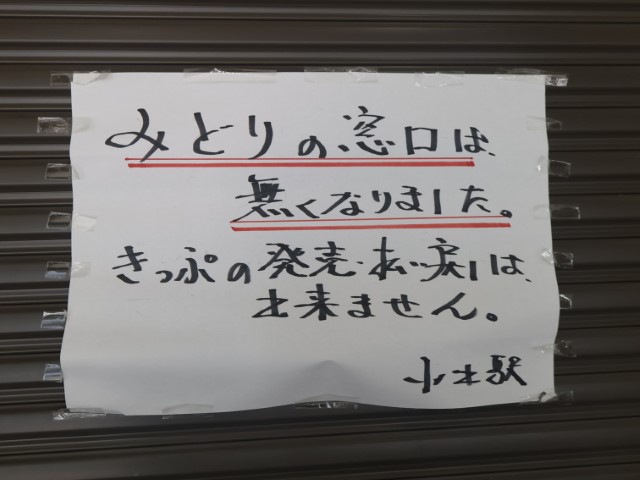 みどりの窓口は、
無くなりました。
きっぷの発売・払い戻しは、
出来ません。
小木駅